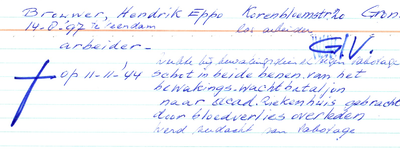 Brouwer, Hendrik Eppo Korenbloemstr 20 Gron.
14-6-'97 te Veendam los arbeider
arbeider - G.V.
werkte bij bewakingsdienst tegen sabotage
op 11-11-'44 schot in beide benen van het
bewakings-wachtbataljon
naar acad. Ziekenhuis gebracht
door bloedverlies overleden
werd verdacht van sabotage